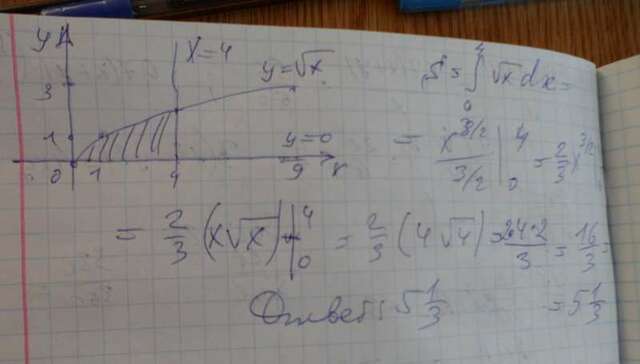 y
x=4
y=√x
3
1
y=0
0 1 4 9 x
S = ∫₀⁴ √x dx =
= x^(3/2) / (3/2) |₀⁴ = 2/3 x^(3/2)
= 2/3 (x√x) |₀⁴ = 2/3 (4√4) = 2·4·2/3 = 16/3 =
Ответ: 5 1/3 = 5 1/3